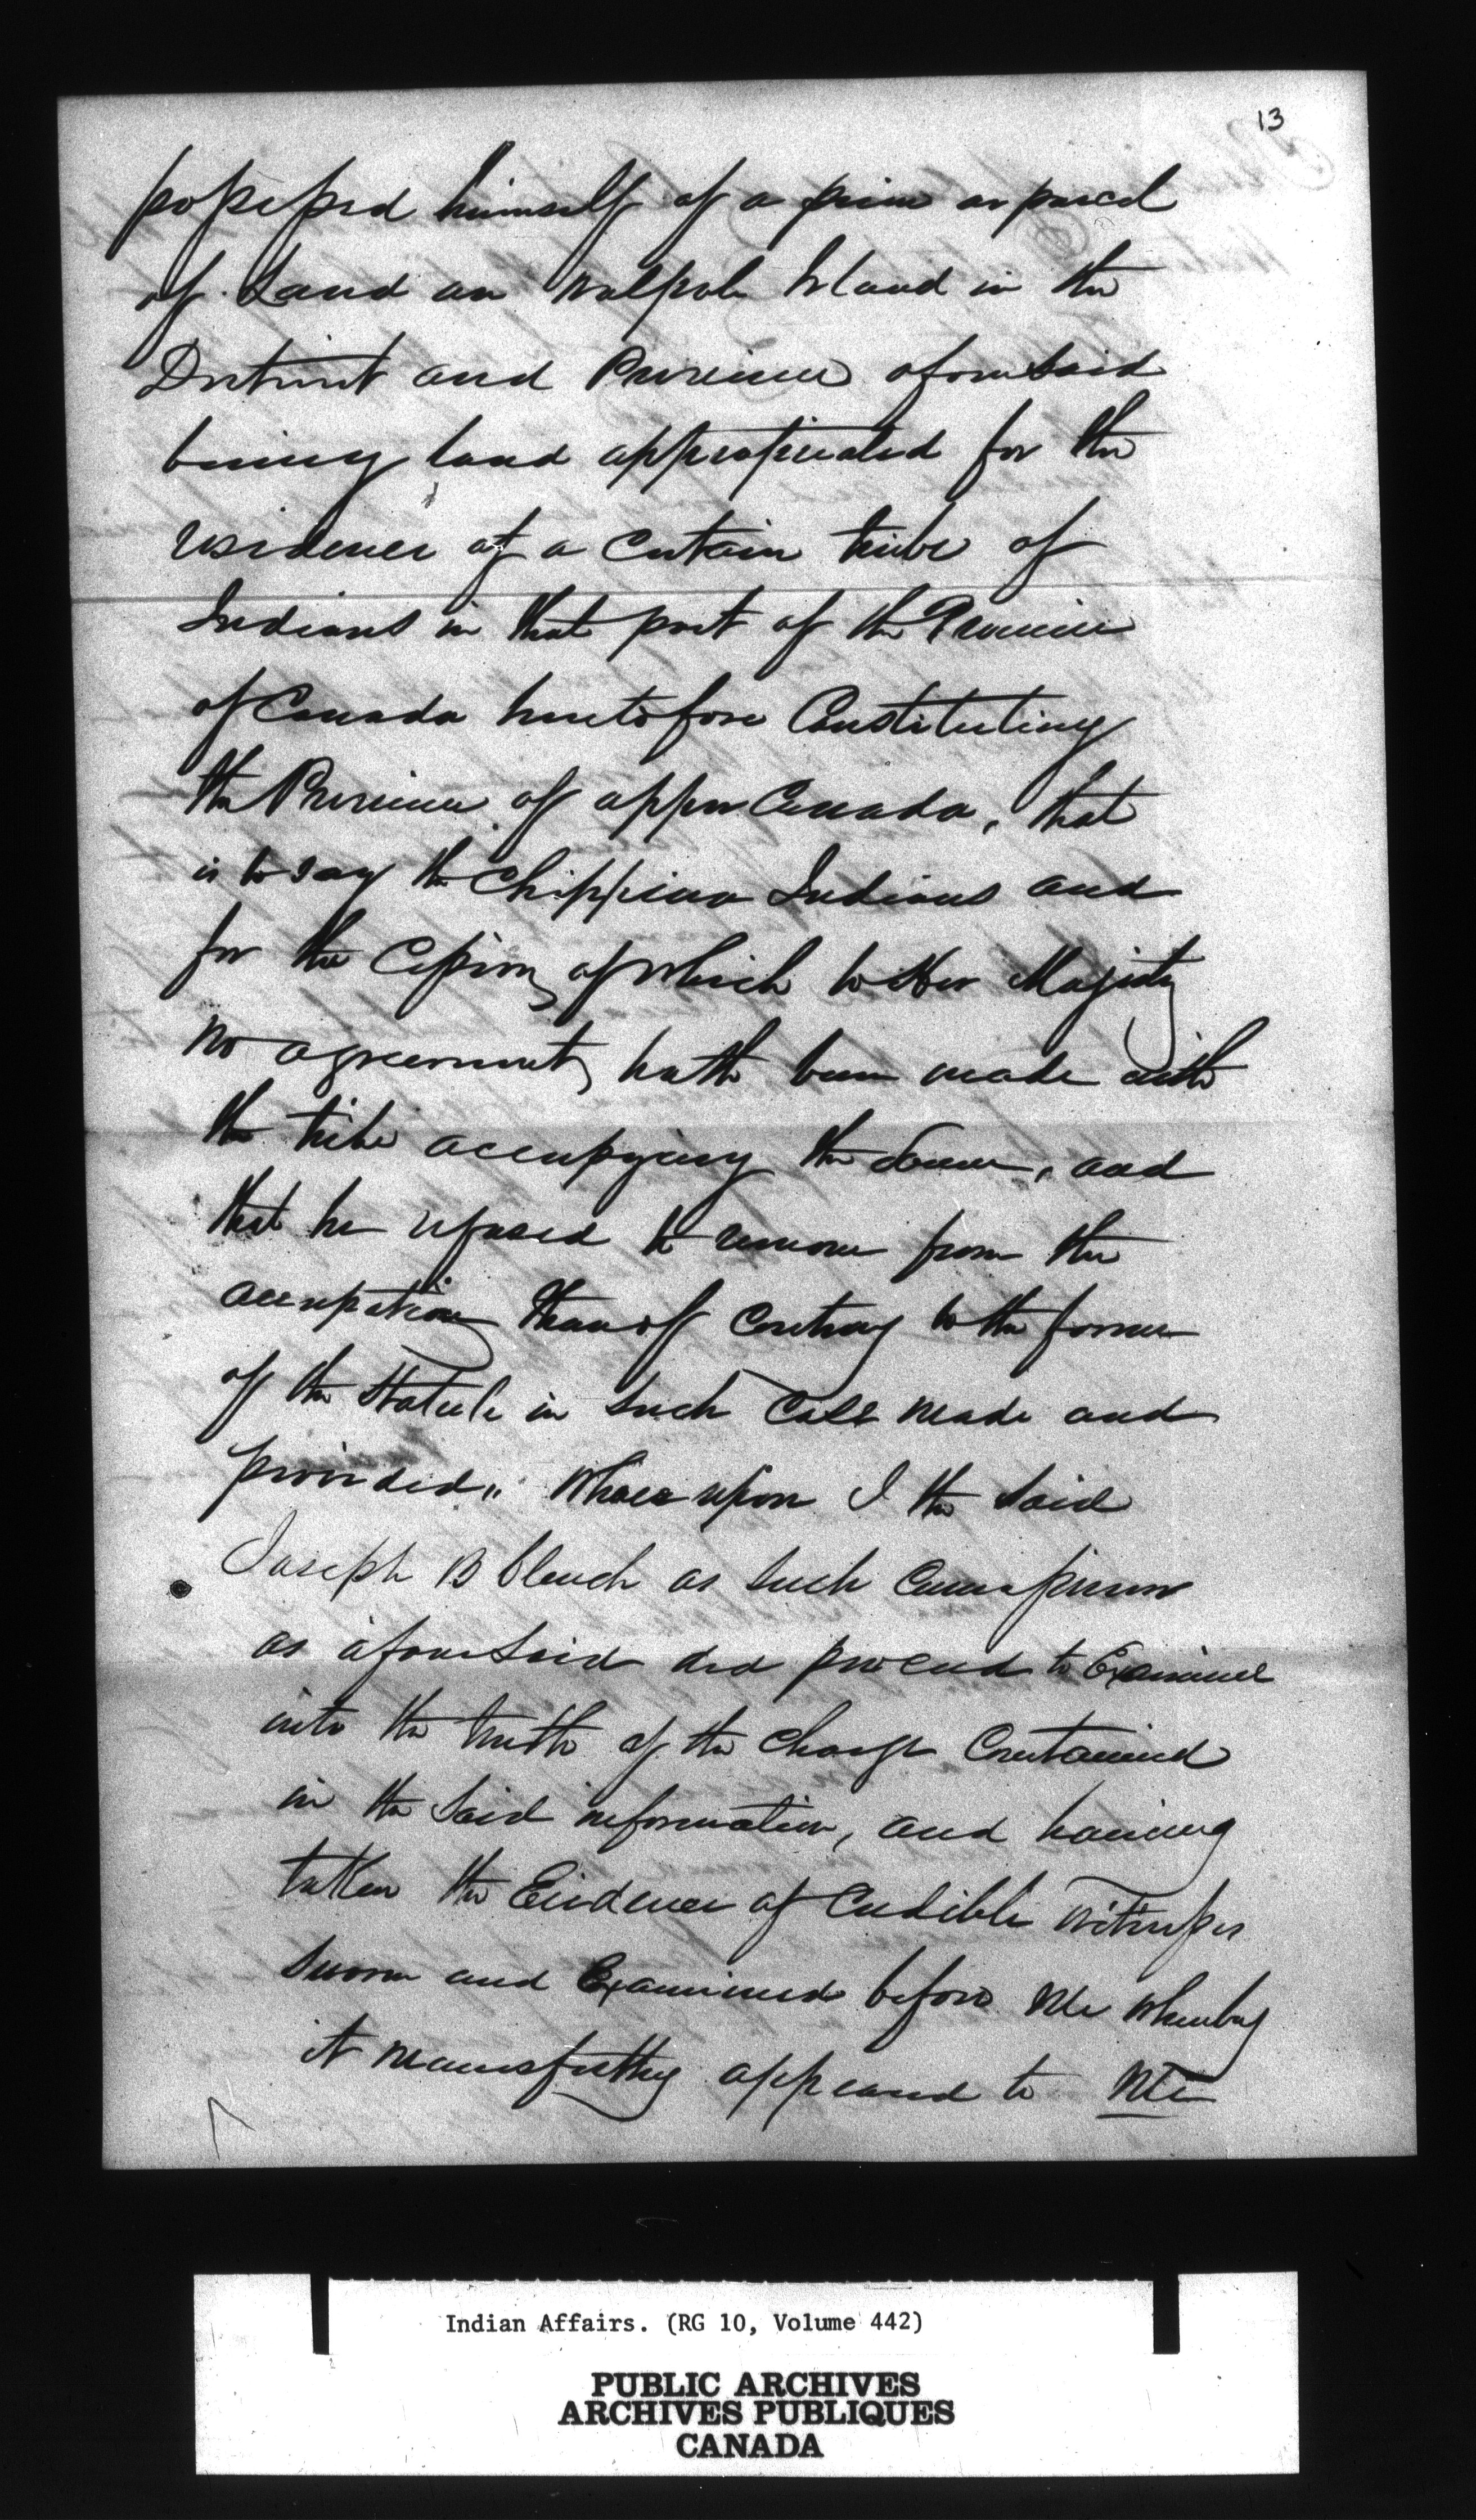 13
possessed himself of a piece or parcel
of Land on Walpole Island in the
District and Province aforesaid
being land appropriated for the
residence of a certain tribe of
Indians in that part of the Province
of Canada heretofore Constituting
the Province of upper Canada, that
is to say the Chippewa Indians and
for the Cession of which to Her Majesty
no agreement hath been made with
the tribe occupying the Same, and
that he refused to remove from the
occupation thereof contrary to the form
of the Statute in such case made and
provided" Whereupon I the said
Joseph B Clench as such Commissioner
as aforesaid did proceed to Examine
into the truth of the charge Contained
in the said information, and having
taken the Evidence of Credible witnesses
sworn and Examined before Me whereby
it manifestly appeared to Me
Indian Affairs. (RG 10, Volume 442)
PUBLIC ARCHIVES
ARCHIVES PUBLIQUES
CANADA